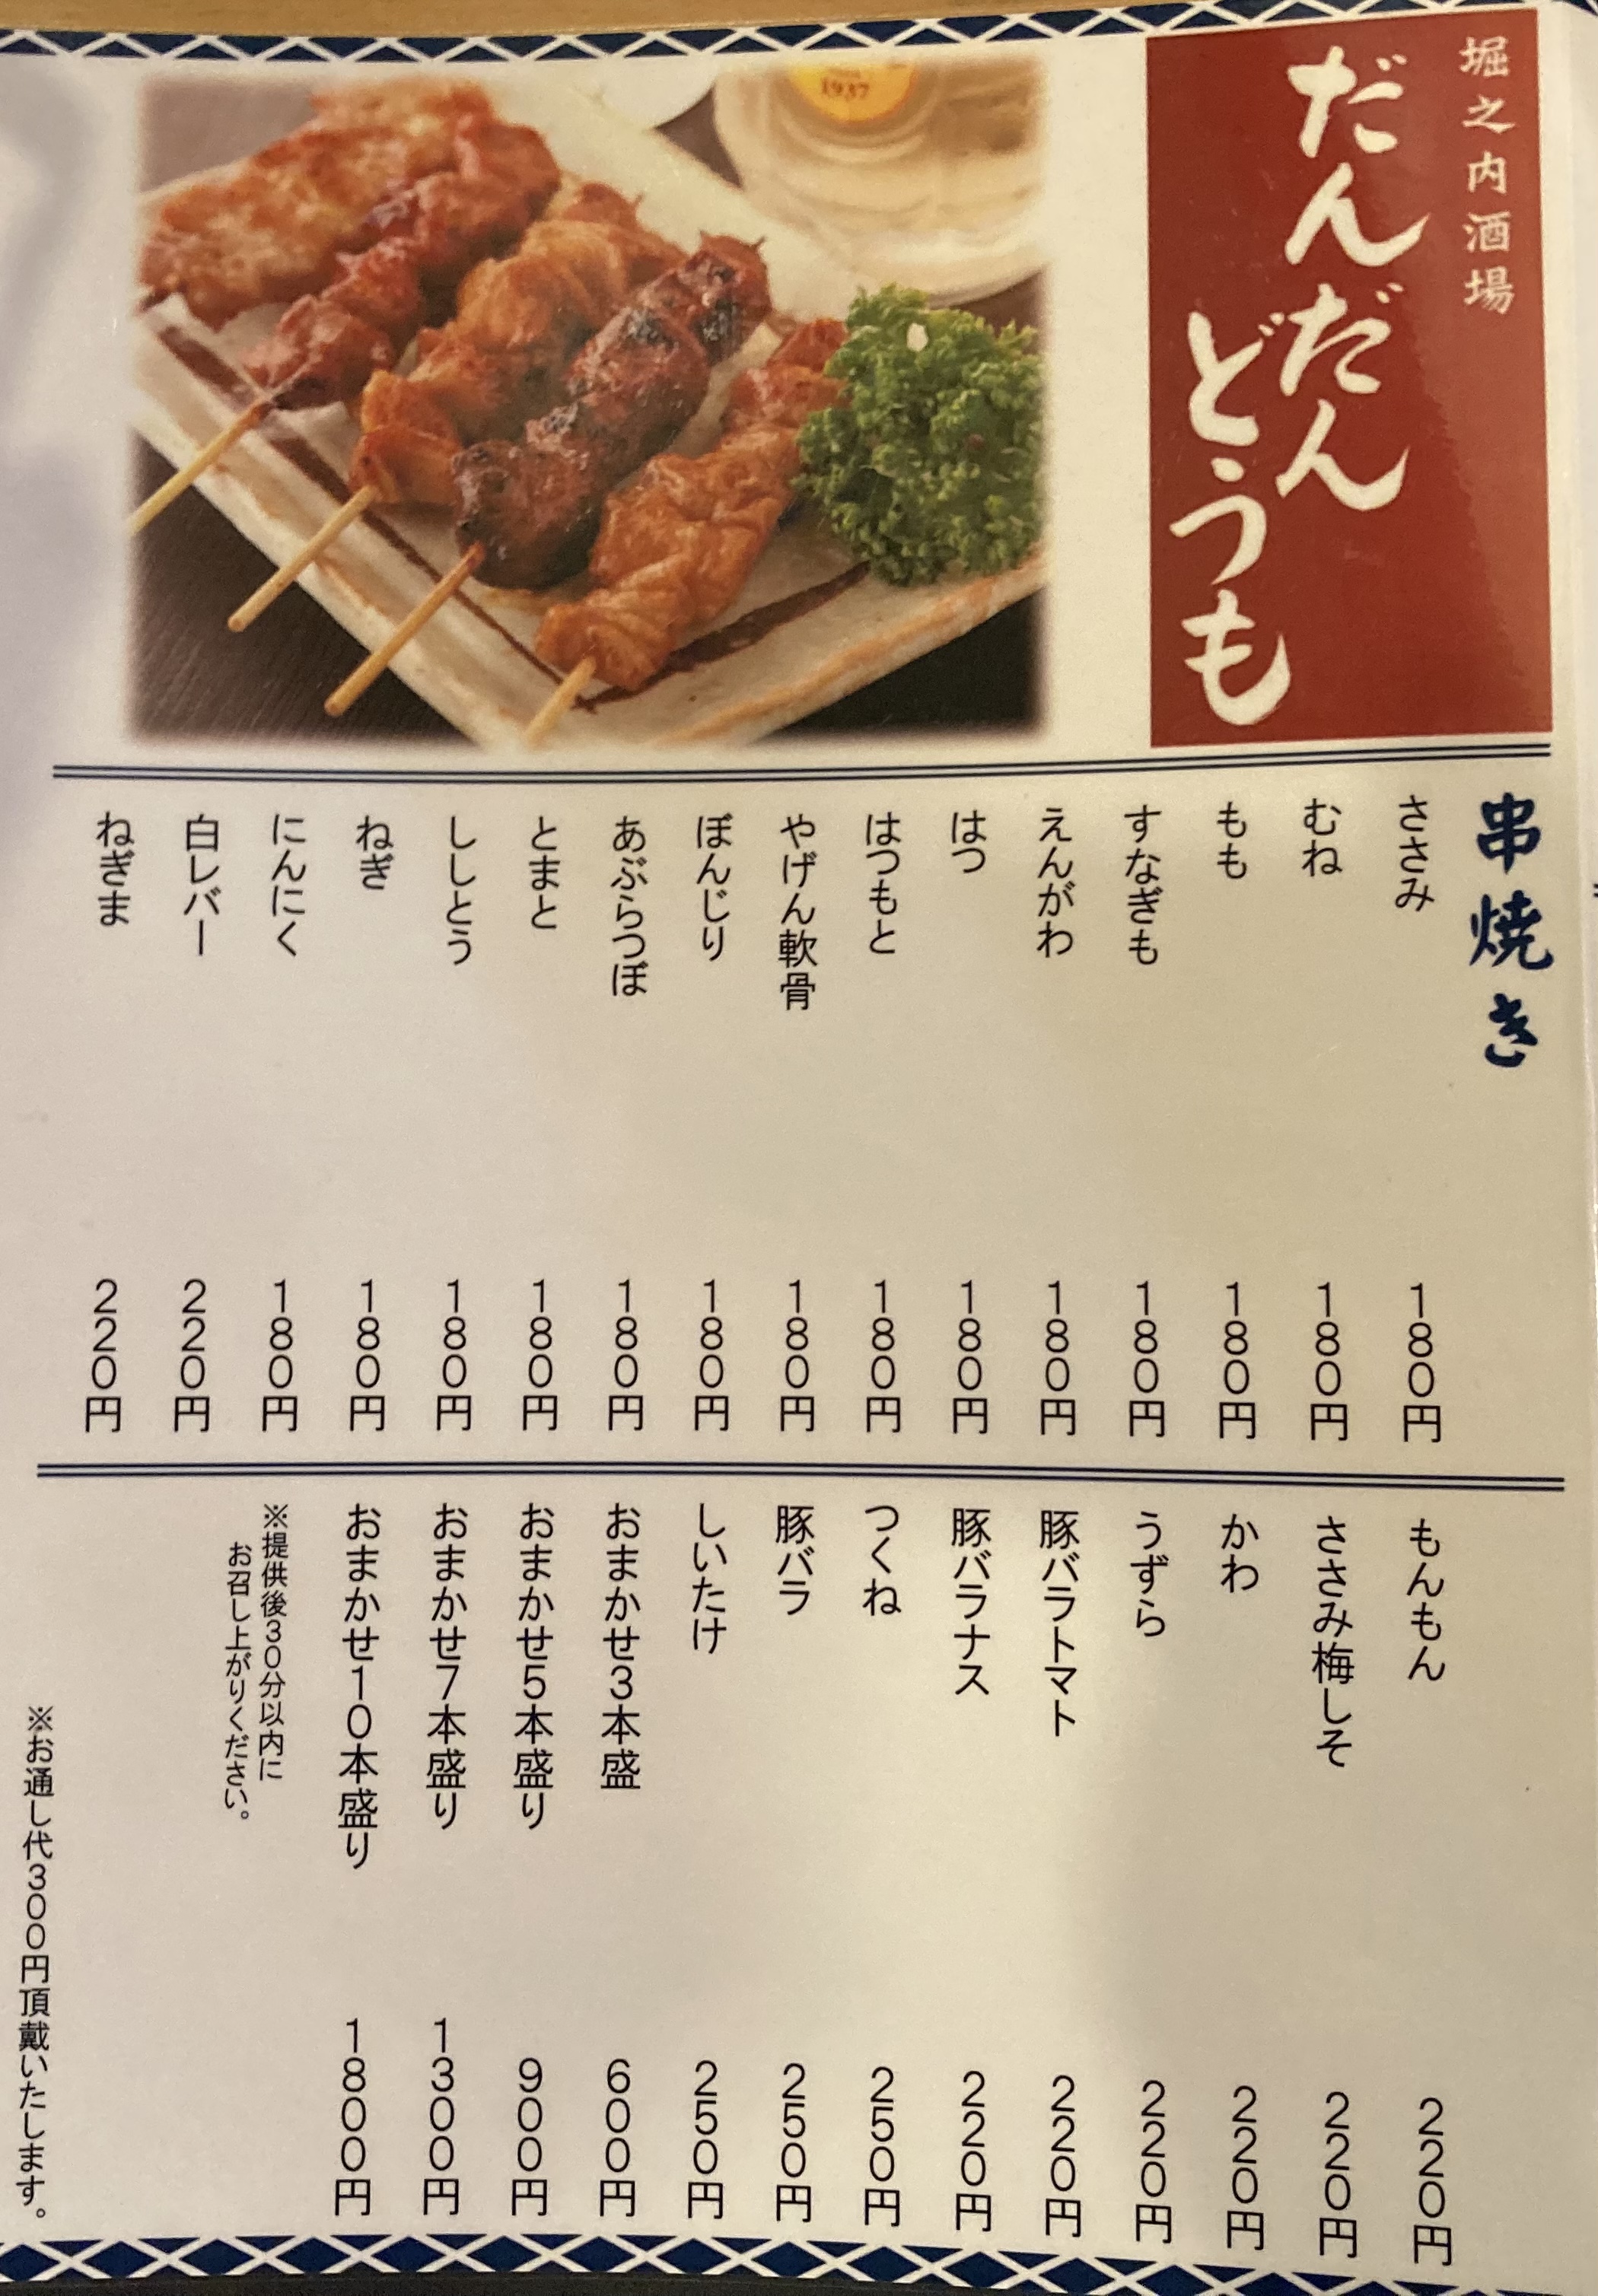 堀之内酒場
だんだん
どうも
1937
串焼き
ささみ 180円
むね 180円
もも 180円
すなぎも 180円
えんがわ 180円
はつ 180円
はつもと 180円
やげん軟骨 180円
ぼんじり 180円
あぶらつぼ 180円
とまと 180円
ししとう 180円
ねぎ 180円
にんにく 180円
白レバー 220円
ねぎま 220円
もんもん 220円
ささみ梅しそ 220円
かわ 220円
うずら 220円
豚バラトマト 220円
豚バラナス 220円
つくね 250円
豚バラ 250円
しいたけ 250円
おまかせ3本盛 600円
おまかせ5本盛り 900円
おまかせ7本盛り 1300円
おまかせ10本盛り 1800円
※提供後30分以内に
お召し上がりください。
※お通し代300円頂戴いたします。